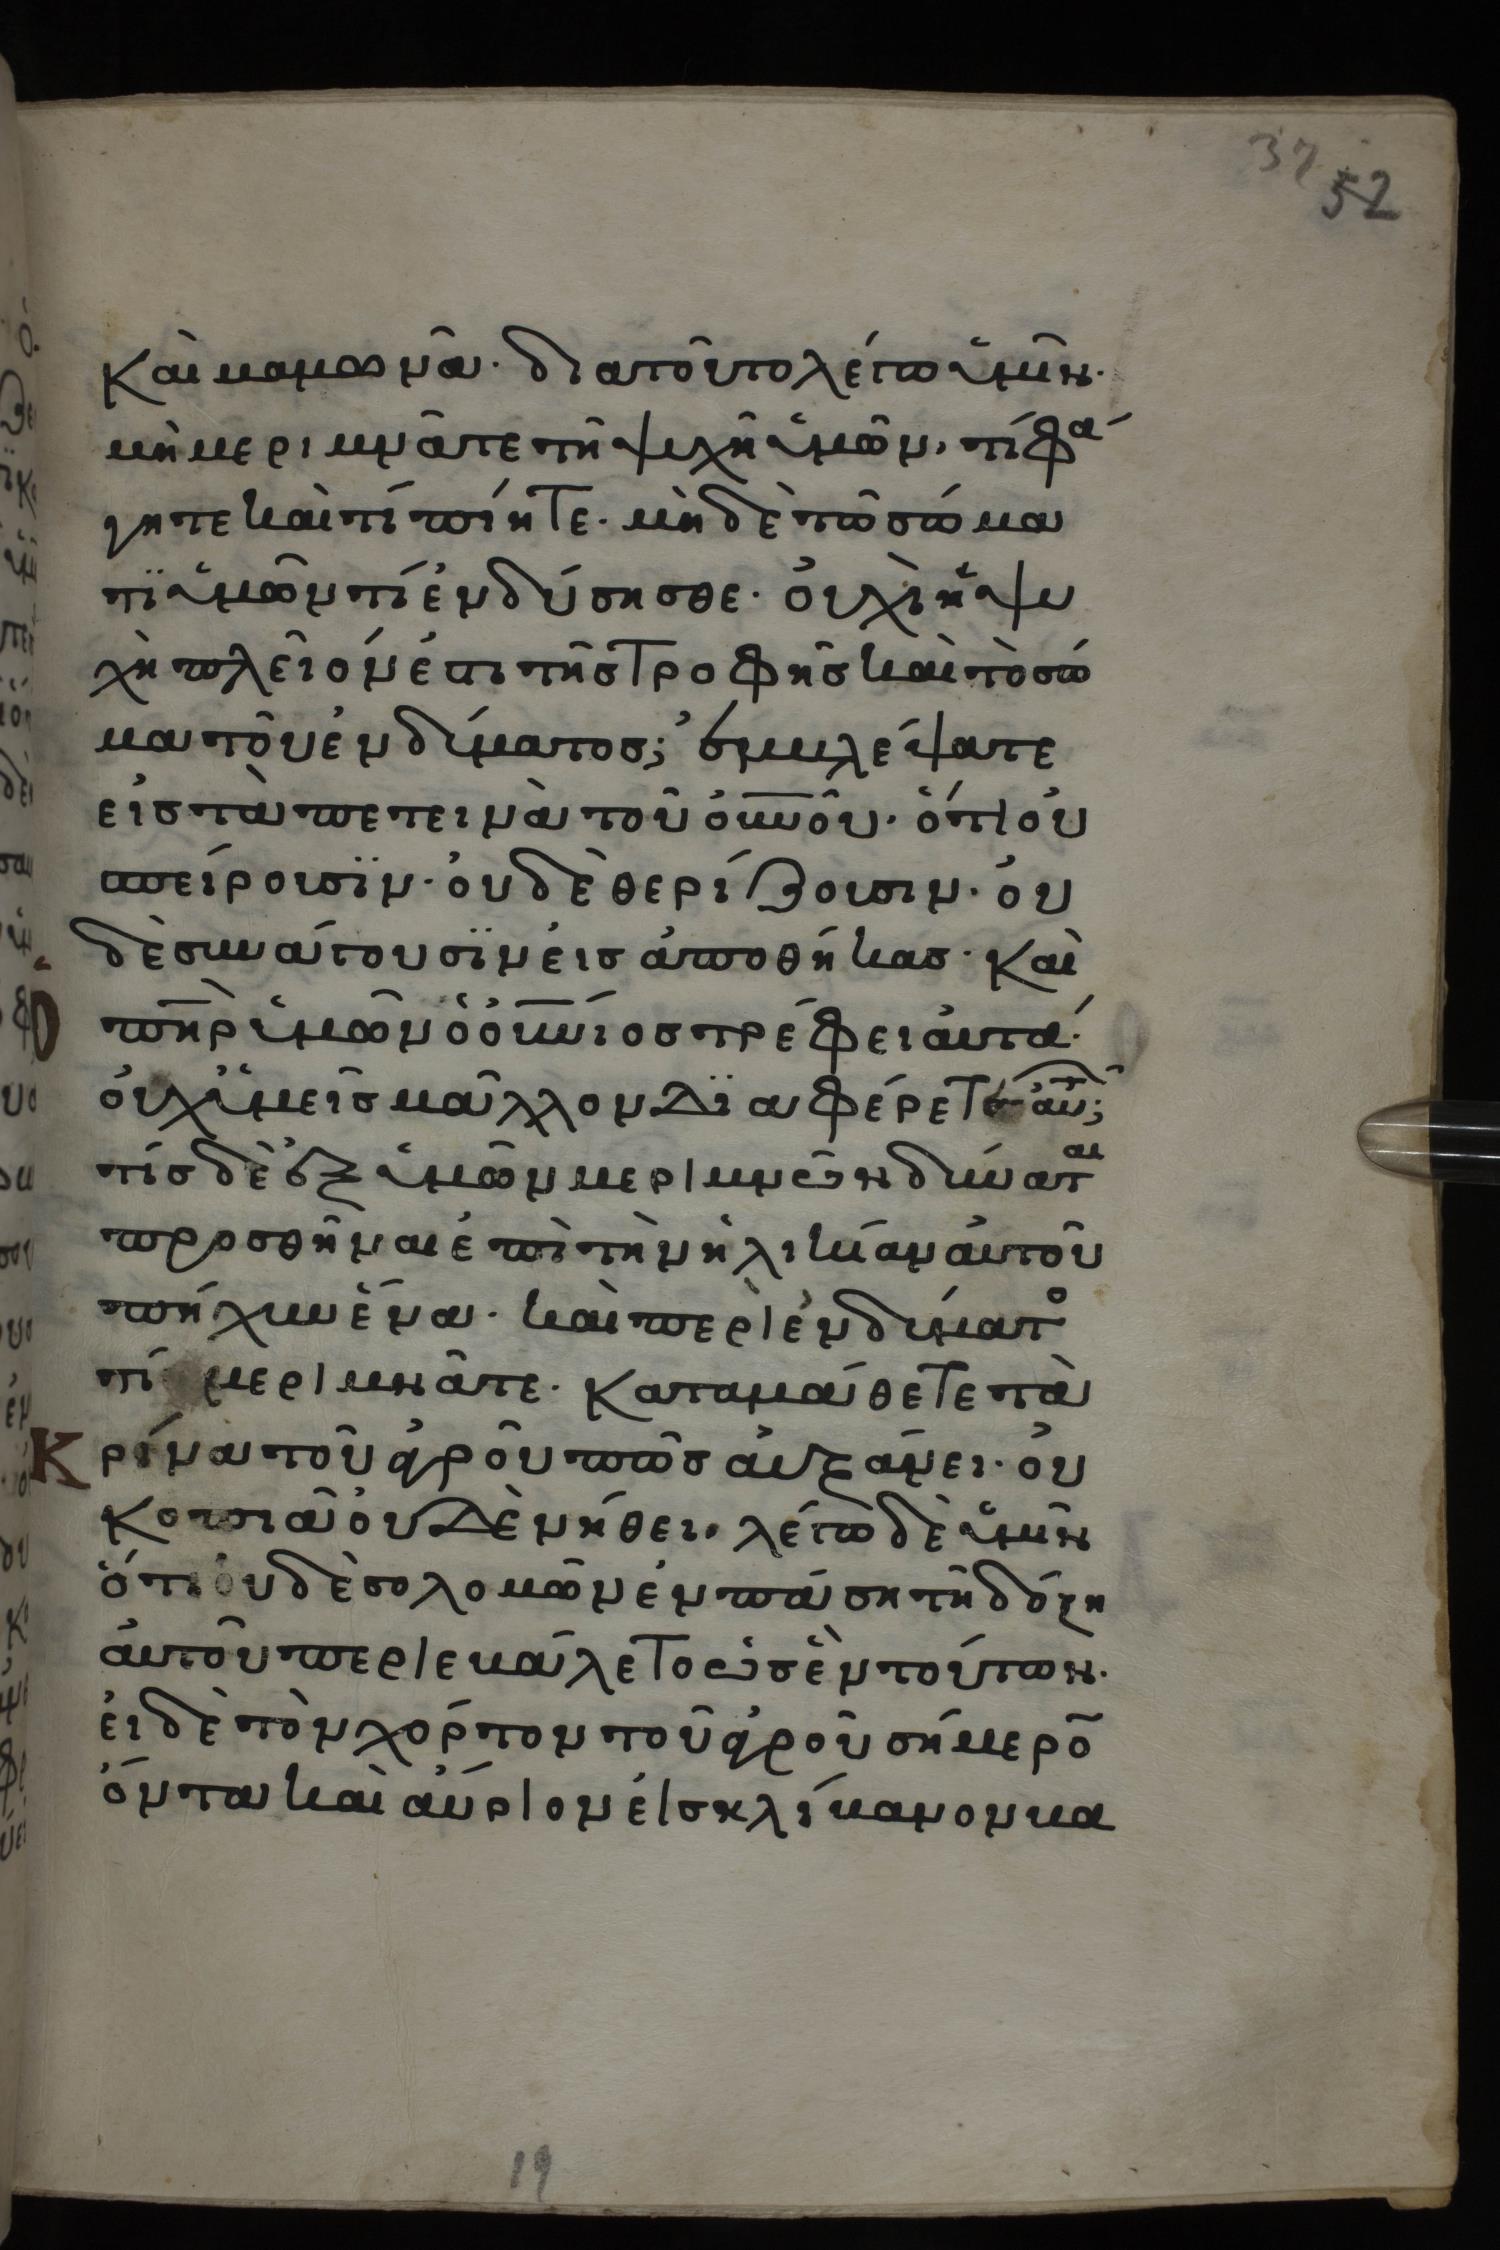 37 52
Καὶ μαμωνᾶ· διατοῦτο λέγω ὑμῖν·
μὴ μεριμνᾶτε τῆ ψυχῆ ὑμῶν, τί φά
γητε καὶ τί πίητε· μὴ δὲ τῶ σώμα
τϊ ὑμῶν τί ἐνδύσησθε· οὐχὶ ἡ ψυ
χὴ πλεῖον ἐστι τῆς τροφῆς καὶ τὸ σῶ
μα τοῦ ἐνδύματος; ἐμβλέψατε
εἰς τὰ πετεινὰ τοῦ οὐ̅νο̅ῦ· ὅτι οὐ
σπείρουσϊν· οὐδὲ θερίζουσιν· οὐ
δὲ συνάγουσϊν εἰς ἀποθήκας· Καὶ
ὁ π̅η̅ρ ὑμῶν ὁ οὐ̅νιος τρέφει αὐτά·
οὐχ ὑμεῖς μᾶλλον δϊαφέρετε αὐτῶν;
τίς δὲ ἐξ ὑμῶν μεριμνῶν δύναται
προσθῆναι ἐπὶ τὴν ἡλικίαν αὐτοῦ
πῆχυν ἕνα· καὶ περὶ ἐνδύματο
τί μεριμνᾶτε· Καταμάθετε τὰ
Κρίνα τοῦ ἀγροῦ πῶς αὐξάνει· οὐ
κοπιᾶ οὐδὲ νήθει, λέγω δὲ ὑμῖν
ὅτι οὐδὲ σολομῶν ἐν πάσῃ τῆ δόξη
αὐτοῦ περιεβάλετο ὡς ἓν τούτων·
εἰ δὲ τὸν χόρτον τοῦ ἀγροῦ σήμερο̅
ὄντα καὶ αὔριον εἰς κλίβανον βα
19